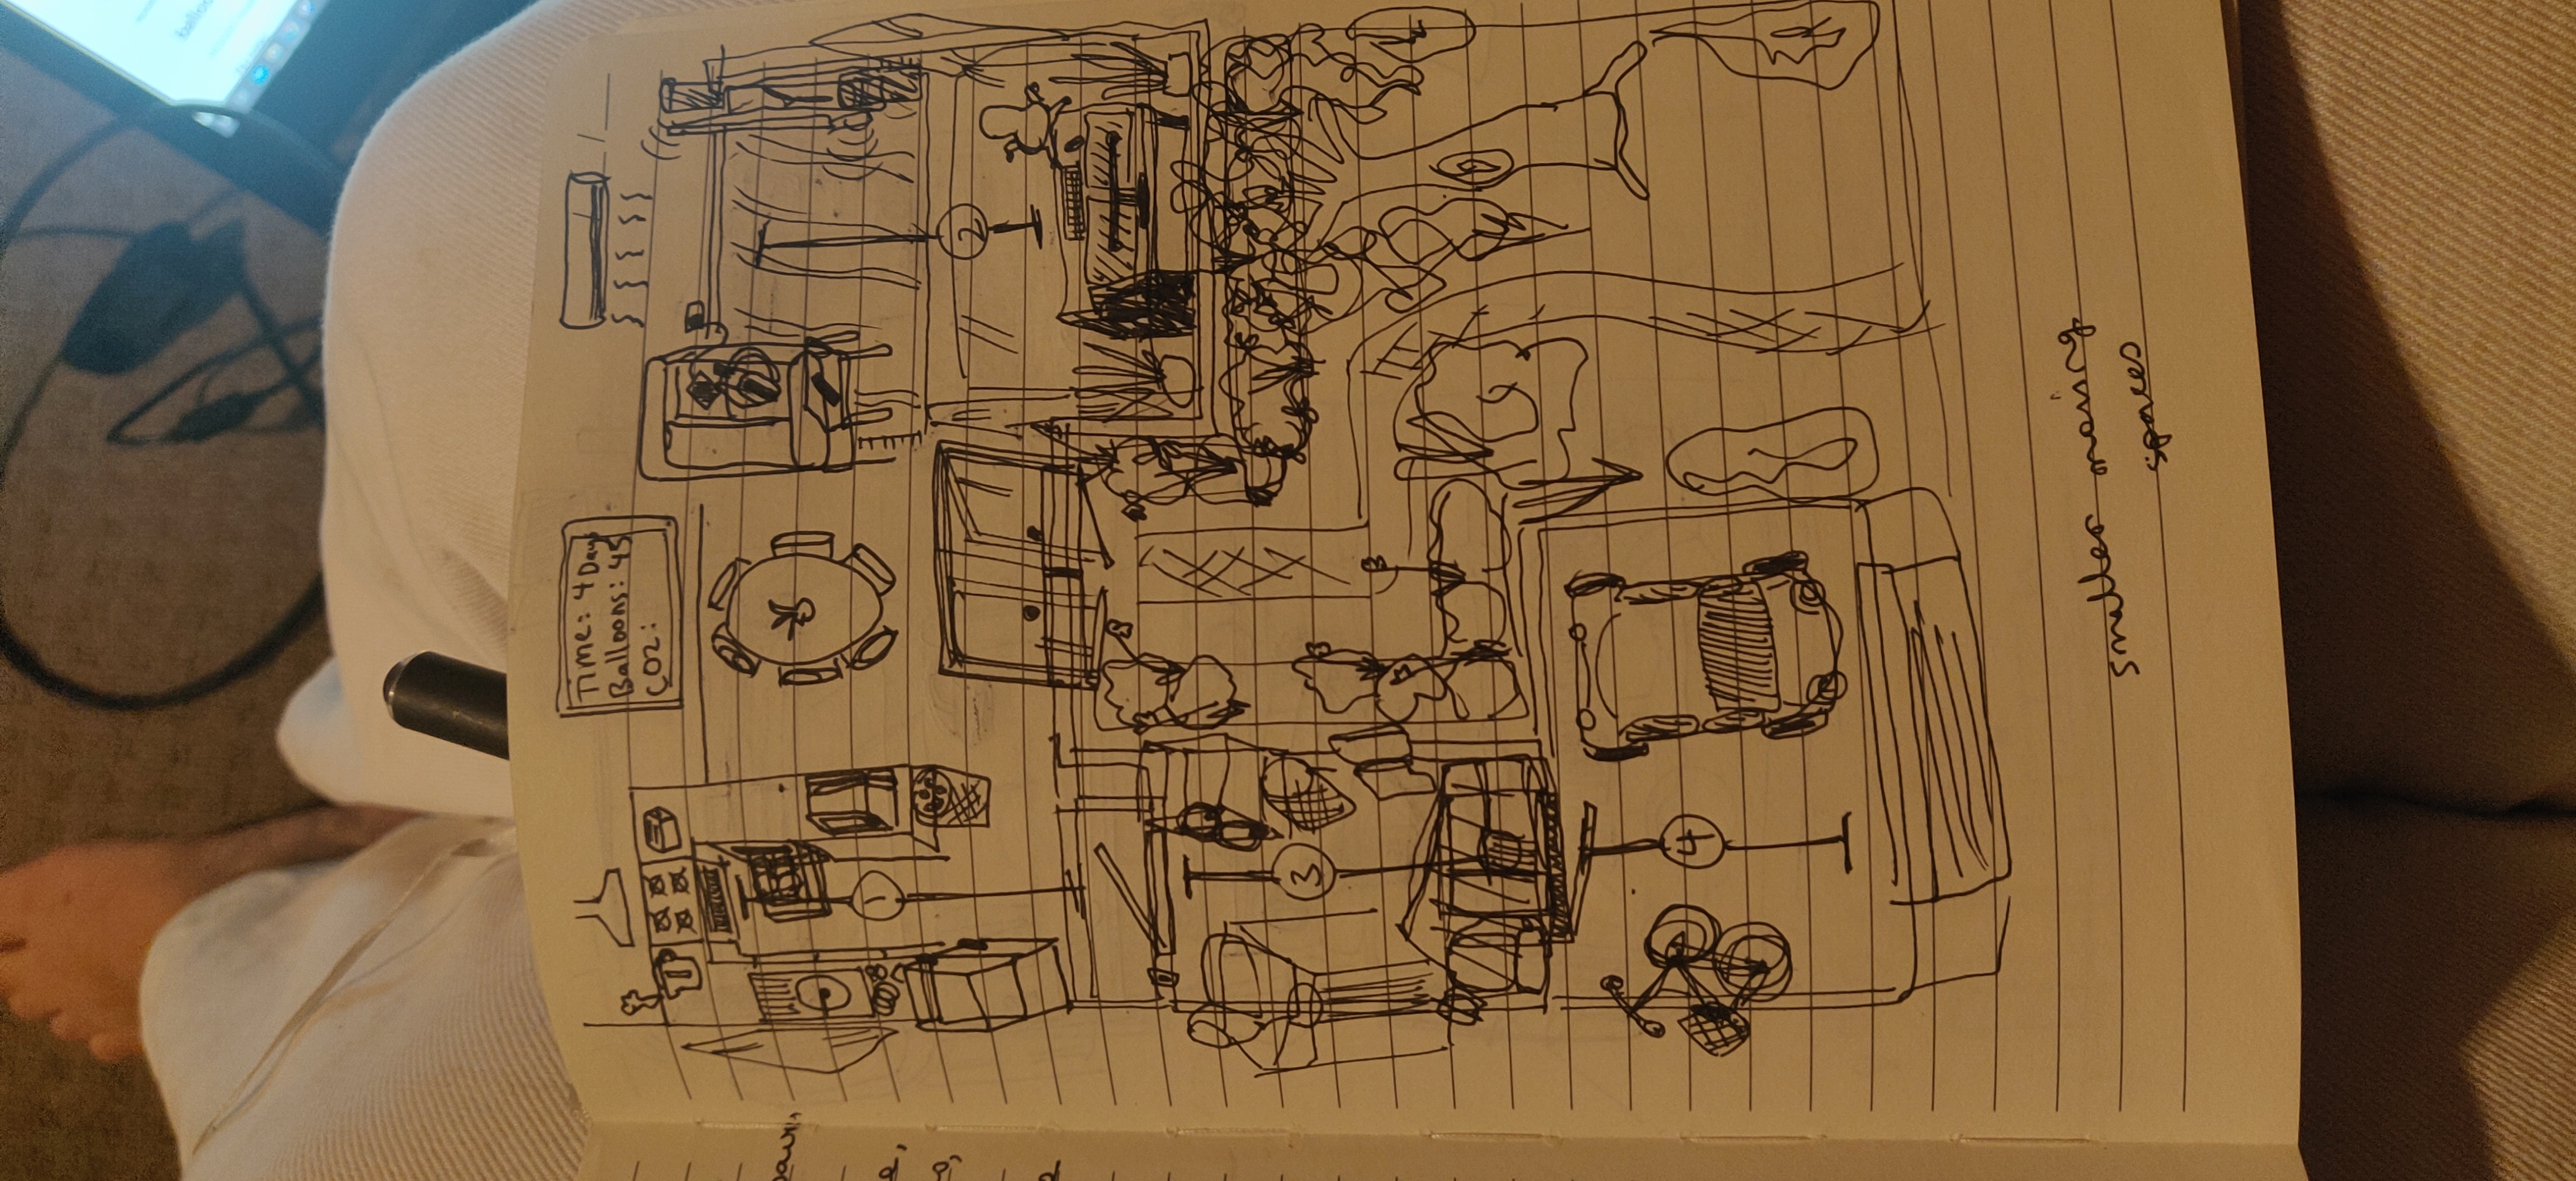 Time: 4 Days
Balloons: 45
CO2:
1
2
3
4
smaller moving
spaces